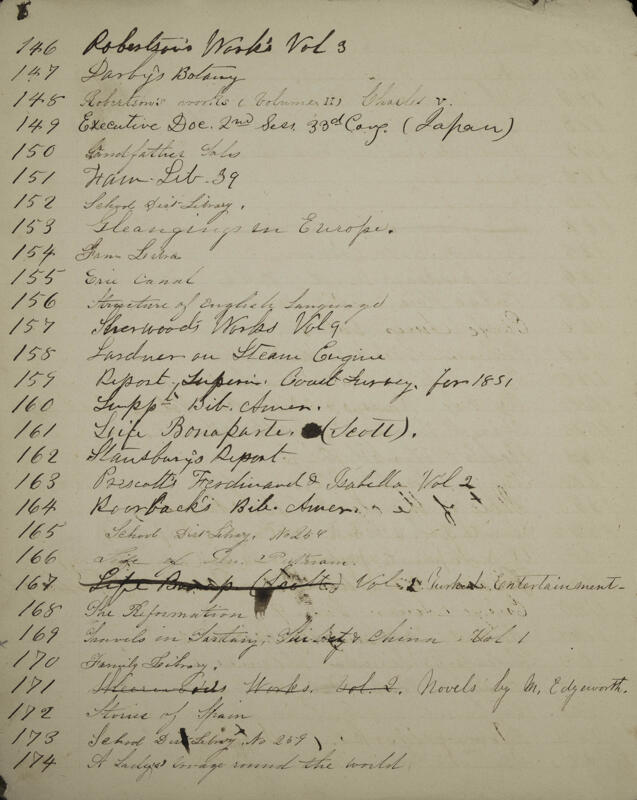 8
146 Robertson's Works Vol 3
147 Darby's Botany
148 Robertson's works (Volume II) Charles V.
149 Executive Doc. 2nd Sess. 33d Cong. (Japan)
150 Grandfather
151 Fam. Lib. 39
152 School Dist Library.
153 Gleanings in Europe.
154
155 Erie Canal
156 Structure of English Language
157 Sherwood's Works Vol 9
158 Lardner on Steam Engine
159 Report, Superin. Coast Survey. for 1851
160 Suppt Bib. Amer.
161 Life Bonaparte (Scott).
162 Stansbury's Report
163 Prescott's Ferdinand & Isabella Vol 2
164 Roorback's Bib. Amer.
165 School Dist Library. No 254
166 Life of Gen. Putnam.
167 Life Bonap (Scott) Vol 2 Entertainment
168 The Reformation
169 Travels in Tartary, Thibet & China Vol 1
170 Family Library.
171 Works. Vol. 2. Novels by M. Edgeworth.
172 Stories of Spain
173 School Dist Library. No 259
174 A Lady's Voyage round the world